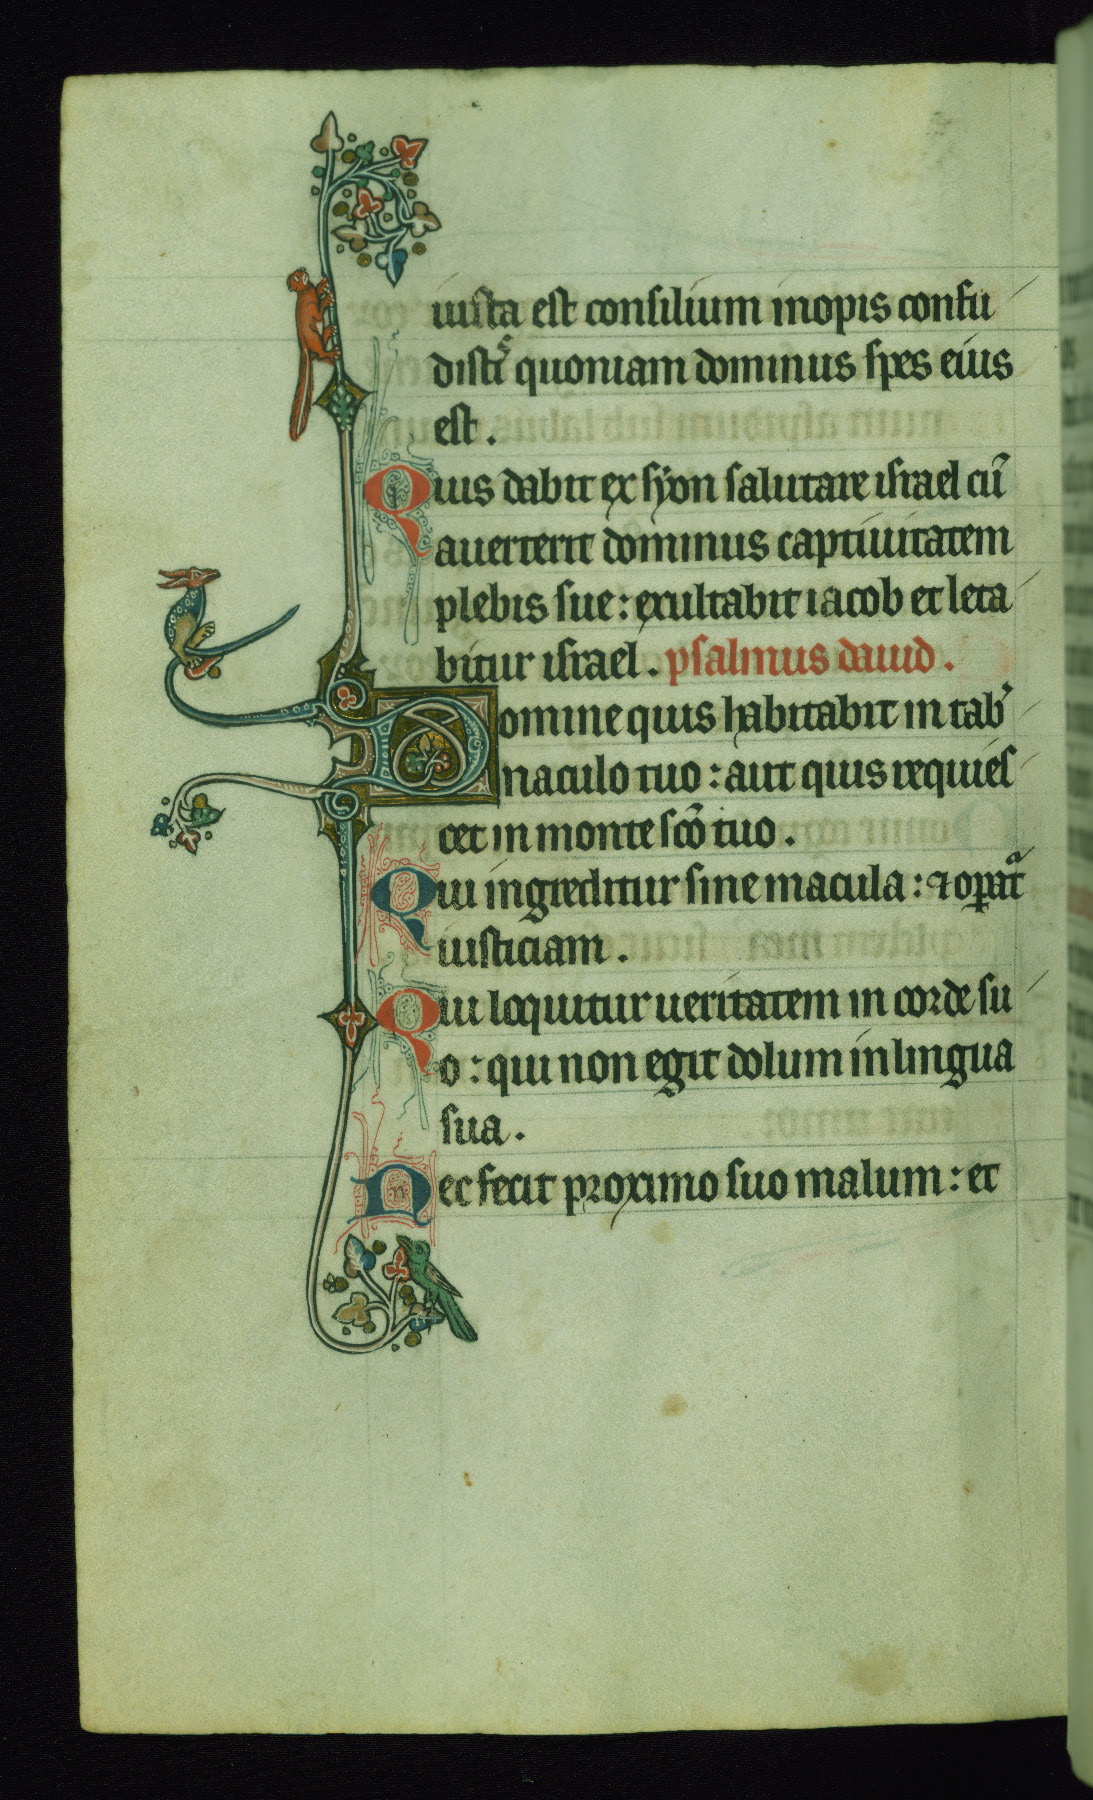 iusta est consilium inopis confu
distis quoniam dominus spes eius
est.
Quis dabit ex syon salutare israel cū
auerterit dominus captiuitatem
plebis sue: exultabit iacob et leta
bitur israel. psalmus dauid.
Domine quis habitabit in tab'
naculo tuo: aut quis requies
cet in monte scō tuo.
Qui ingreditur sine macula: ⁊ oꝑat᷑
iusticiam.
Qui loquitur ueritatem in corde su
o: qui non egit dolum in lingua
sua.
Nec fecit proximo suo malum: et